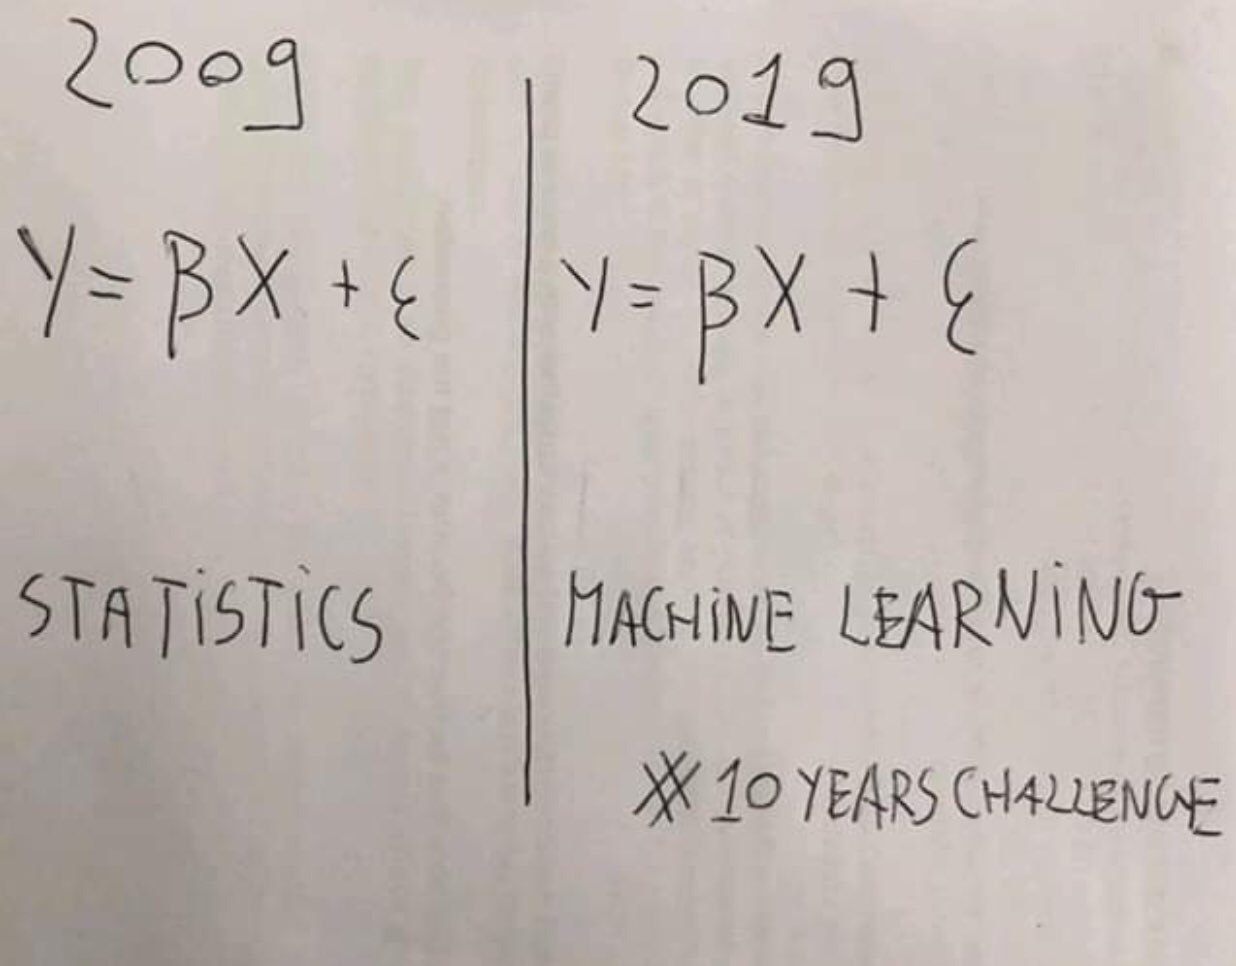 2009
Y = β X + ε
STATISTICS
2019
Y = β X + ε
MACHINE LEARNING
# 10 YEARS CHALLENGE